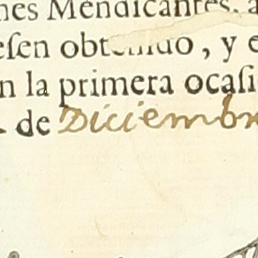 nes Mendicantes. a
eſen obtenido, y e
n la primera ocaſi
de Diciembr